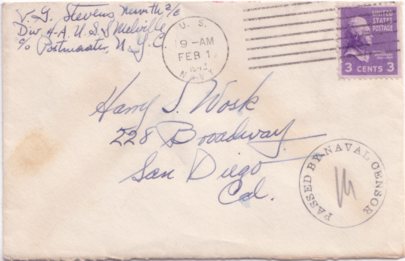 V. G. Stevens
Div 4-A, U.S.S. Melville
c/o Postmaster, N.Y.C.
U. S.
9-AM
FEB 1
UNITED STATES
POSTAGE
3 CENTS 3
Harry S. Wosk
228 Broadway
San Diego
Cal.
PASSED BY NAVAL CENSOR